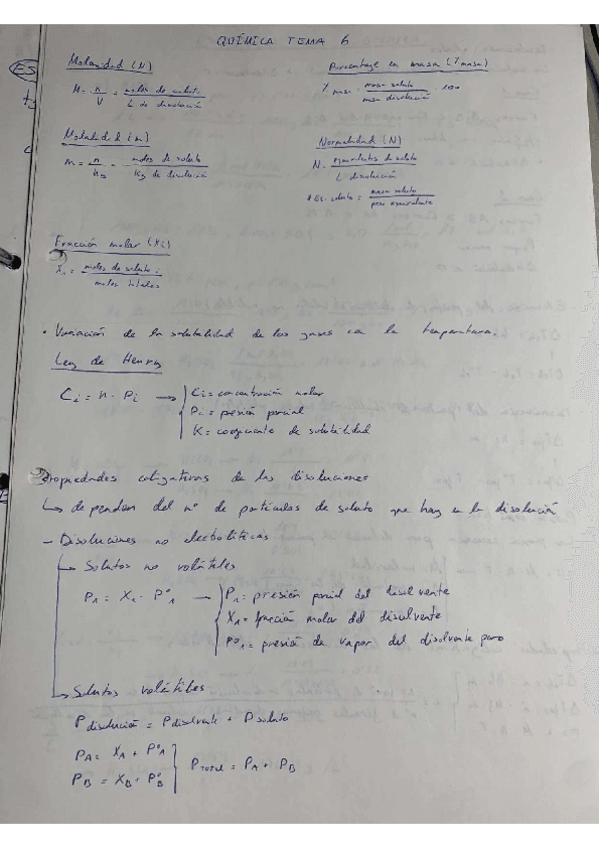 QUÍMICA TEMA 6
Molaridad (N)
M = n/V = moles de soluto / L de disolución
Porcentaje en masa (% masa)
% masa = masa soluto / masa disolución · 100
Molalidad (m)
m = n/ = moles de soluto / Kg de disolución
Normalidad (N)
N = equivalentes de soluto / L disolución
soluto = masa soluto / peso equivalente
Fracción molar (Xi)
Xi = moles de soluto i / moles totales
• Variación de la solubilidad de los gases con la temperatura.
Ley de Henry
Ci = K · Pi → Ci = concentración molar
Pi = presión parcial
K = coeficiente de solubilidad
Propiedades coligativas de las disoluciones
↳ dependen del nº de partículas de soluto que hay en la disolución
- Disoluciones no electolíticas
↳ Solutos no volátiles
P₁ = X₁ · P⁰₁ → P₁ = presión parcial del disolvente
X₁ = fración molar del disolvente
P⁰₁ = presión de vapor del disolvente puro
↳ Solutos volátiles
P disolución = P disolvente + P soluto
PA = XA · P⁰A
PB = XB · P⁰B
PTotal = PA + PB